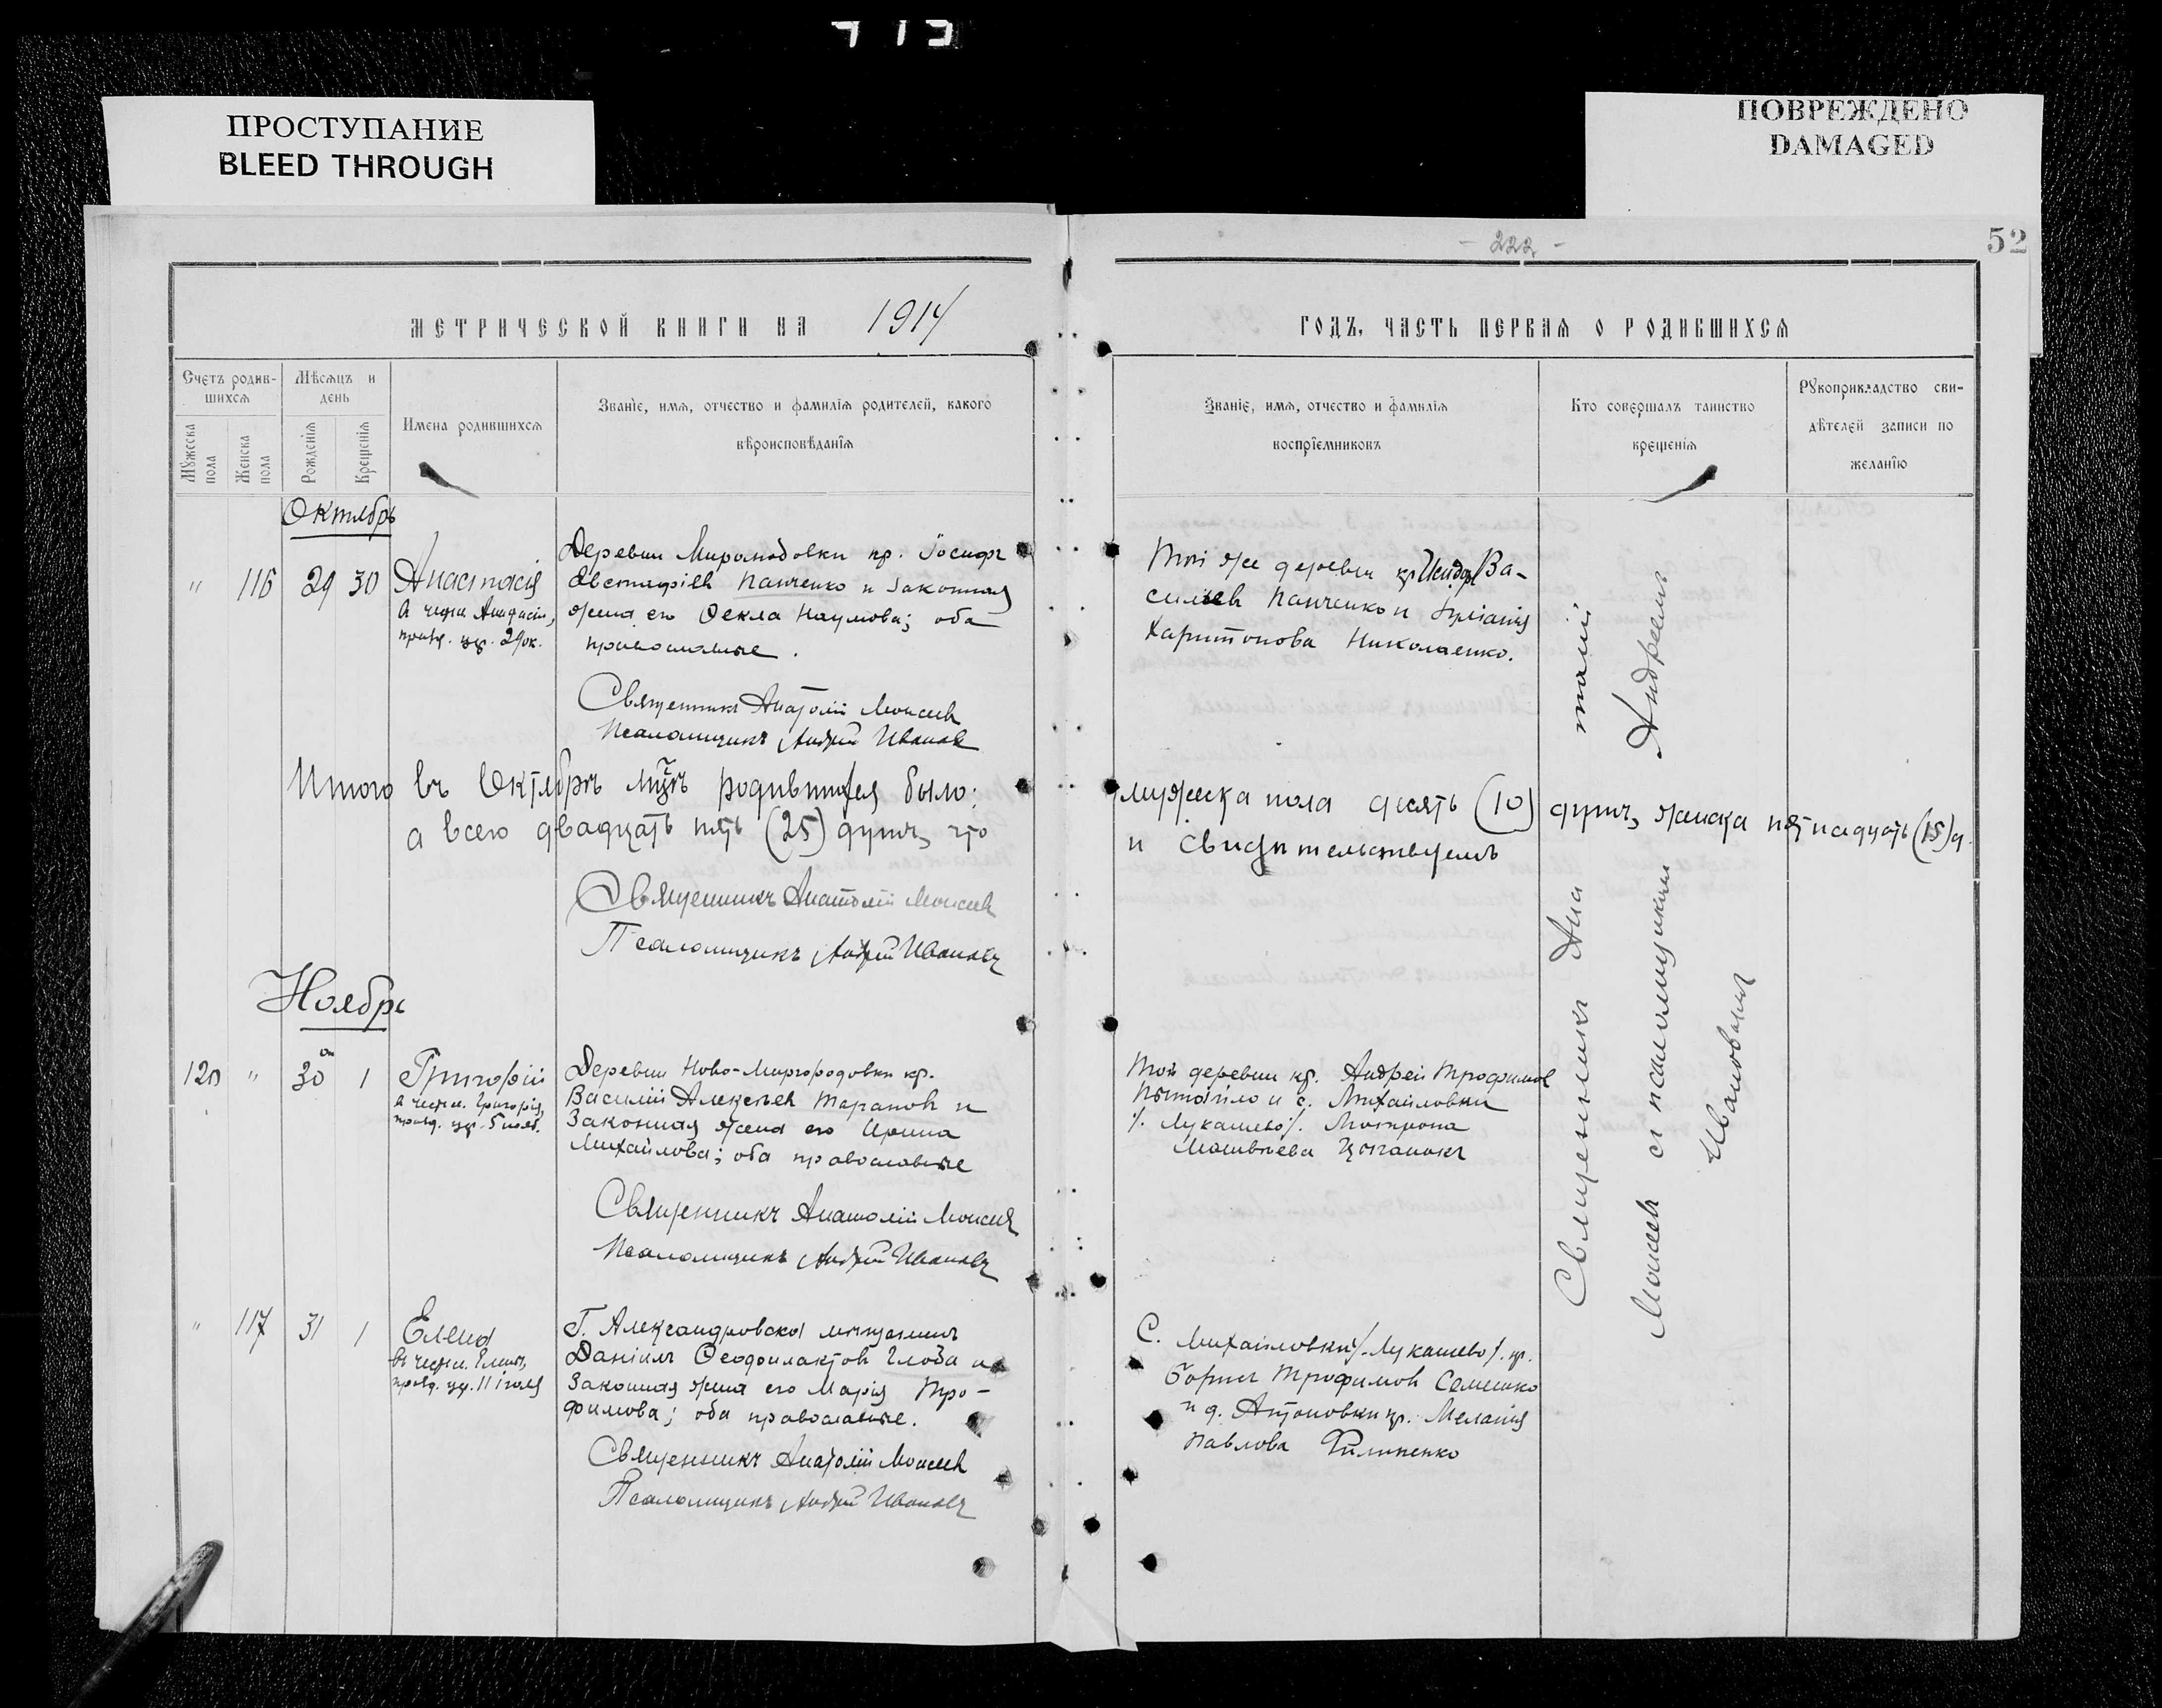 ПРОСТУПАНИЕ
BLEED THROUGH
ПОВРЕЖДЕНО
DAMAGED
- 222 -
52
МЕТРИЧЕСКОЙ КНИГИ НА 1914
ГОДЪ, ЧАСТЬ ПЕРВАЯ О РОДИВШИХСЯ
Счетъ родив-
шихся
Мужеска
пола
Женска
пола
Мѣсяцъ и
день
Рожденія
Крещенія
Имена родившихся
Званіе, имя, отчество и фамилія родителей, какого
вѣроисповѣданія
Званіе, имя, отчество и фамилія
воспріемниковъ
Кто совершалъ таинство
крещенія
Рукоприкладство сви-
дѣтелей записи по
желанію
Октябрь
" 116 29 30 Анастасія
празд. 29 ок.
Деревни кр. Іосифъ
Евстафіевъ Панченко и законная
жена его Ѳекла Наумова; оба
православные.
Священникъ Анатолій Моисеев
Псаломщикъ Андрей Ивановъ
Той же деревни кр. Ва-
сильевъ Панченко и
Харитонова Николаенко.
Итого въ Октябрѣ родившихся было:
мужеска пола десять (10) душъ, женска пятнадцать (15) д.
а всего двадцать пять (25) душъ, что
и свидѣтельствуемъ
Священникъ Анатолій Моисеев
Псаломщикъ Андрей Ивановъ
Ноябрь
120 " 30 1 Григорій
в чест. Григорія,
празд. 5 нояб.
Деревни Ново-Миргородовки кр.
Василій Алексѣев Таранов и
законная жена его Ирина
Михайлова; оба православные
Священникъ Анатолій Моисеев
Псаломщикъ Андрей Ивановъ
Той деревни кр. Андрей Трофимов
и с. Михайловки
/. Лукашево /. Мотрона
Матвѣева Цыганокъ
" 117 31 1 Елена
въ чест. Елены,
празд. 11 іюля
Г. Александровска мѣщанинъ
Даніилъ Ѳеофилактов Глоба и
законная жена его Марія Тро-
фимова; оба православные.
Священникъ Анатолій Моисеев
Псаломщикъ Андрей Ивановъ
С. Михайловки /. Лукашево /. кр.
Борисъ Трофимов Семенко
и д. Антоновки кр. Меланія
Павлова Филипенко
Священникъ Ана толій
Моисеев съ псаломщикомъ Андреемъ
Ивановымъ